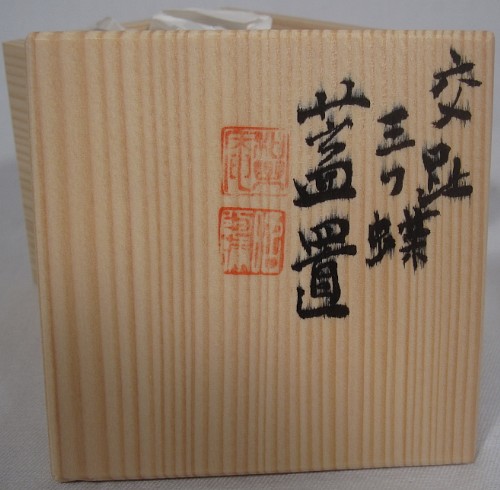 交趾
三ツ蝶
蓋置